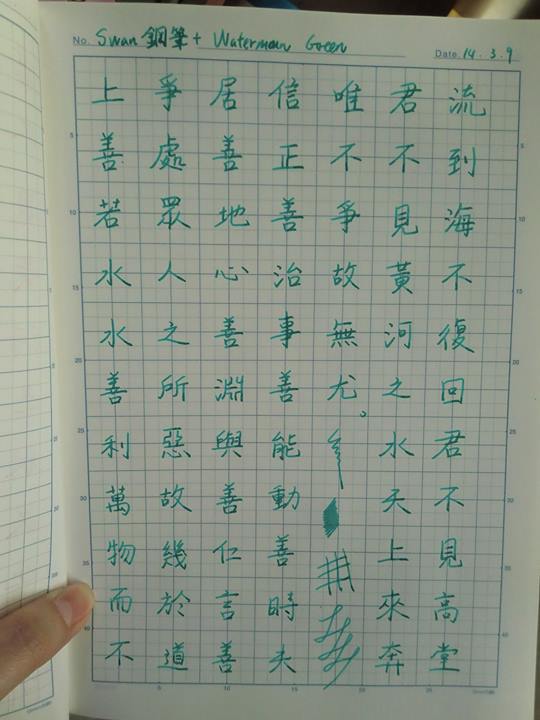 No. Swan 鋼筆 + Waterman Green
Date. 14.3.9
上善若水水善利萬物而不
爭處眾人之所惡故幾於道
居善地心善淵與善仁言善
信正善治事善能動善時夫
唯不爭故無尤。
君不見黃河之水天上來奔
流到海不復回君不見高堂